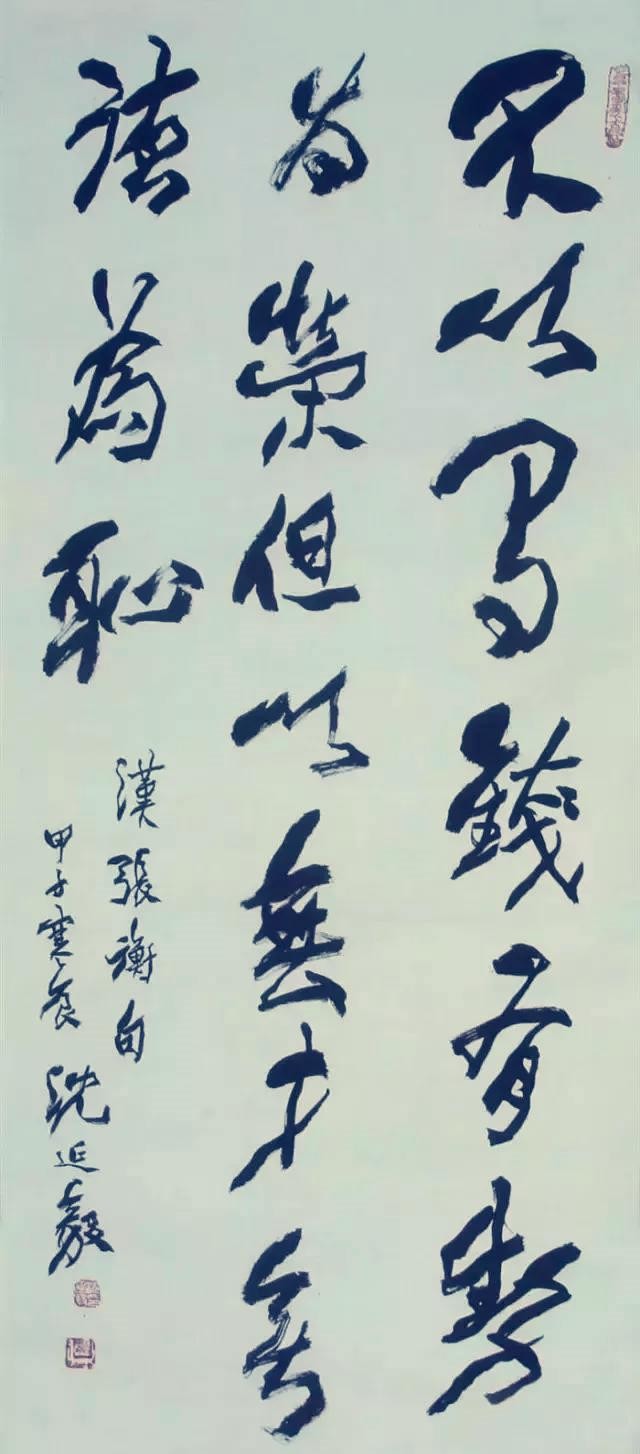 不以有錢有勢
為榮但以無才無
德為恥
漢張衡句
甲子寒食沈延毅